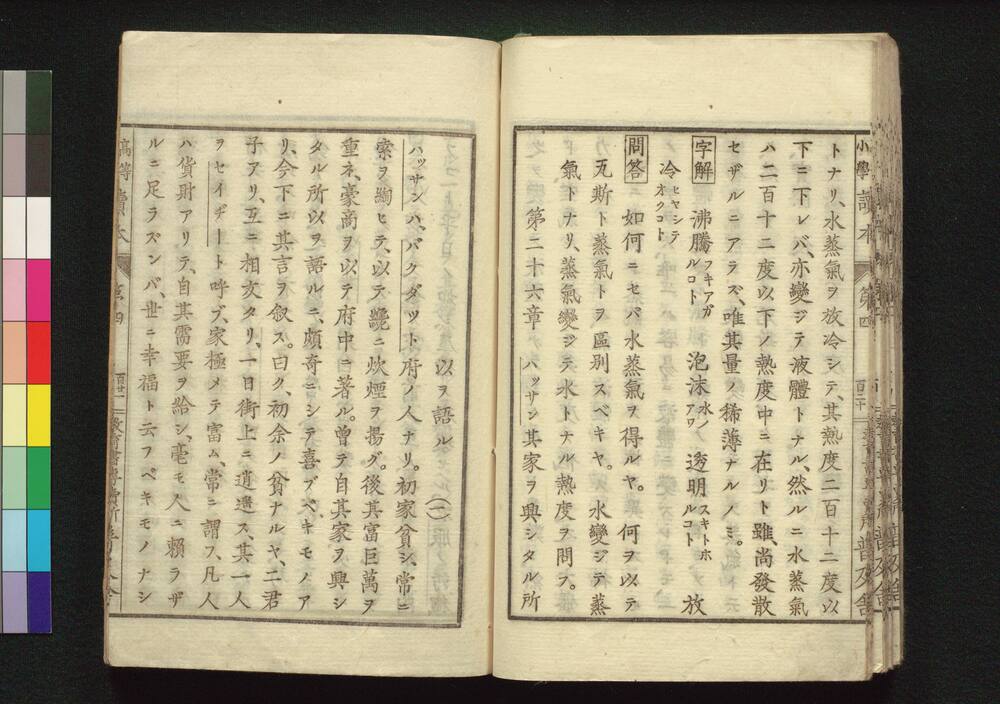 小學讀本
第四
百二十
普及舍
トナリ、水蒸氣ヲ放冷シテ、其熱度二百十二度以
下ニ下レバ、亦變ジテ液體トナル、然ルニ水蒸氣
ハ二百十二度以下ノ熱度中ニ在リト雖、尚發散
セザルニアラズ、唯其量ノ稀薄ナルノミ。
字解 沸騰 フキアガルコト 泡沫 水ノアワ 透明 スキトホルコト 放
冷 ヒヤシテオクコト
問答 如何ニセバ水蒸氣ヲ得ルヤ。 何ヲ以テ
瓦斯ト蒸氣トヲ區別スベキヤ。 水變ジテ蒸
氣トナリ、蒸氣變ジテ水トナル熱度ヲ問フ。
第二十六章 ハッサン其家ヲ興シタル所
以ヲ語ル (一)
ハッサンハ、バクダット府ノ人ナリ。初家貧シ、常ニ
索ヲ綯ヒテ、以テ纔ニ炊煙ヲ揚グ。後其富巨萬ヲ
重ネ、豪商ヲ以テ府中ニ著ル。曾テ自其家ヲ興シ
タル所以ヲ語ルニ、頗奇ニシテ喜ブベキモノア
リ、今下ニ其言ヲ叙ス。曰ク、初余ノ貧ナルヤ、二君
子アリ、互ニ相交タリ、一日街上ニ逍遙ス、其一人
ヲセイヂート呼ブ、家極メテ富ム、常ニ謂フ、凡人
ハ貨財アリテ、自其需要ヲ給シ、毫モ人ニ賴ラザ
ルニ足ラズンバ、世ニ幸福ト云フベキモノナシ
高等讀本
百廿一